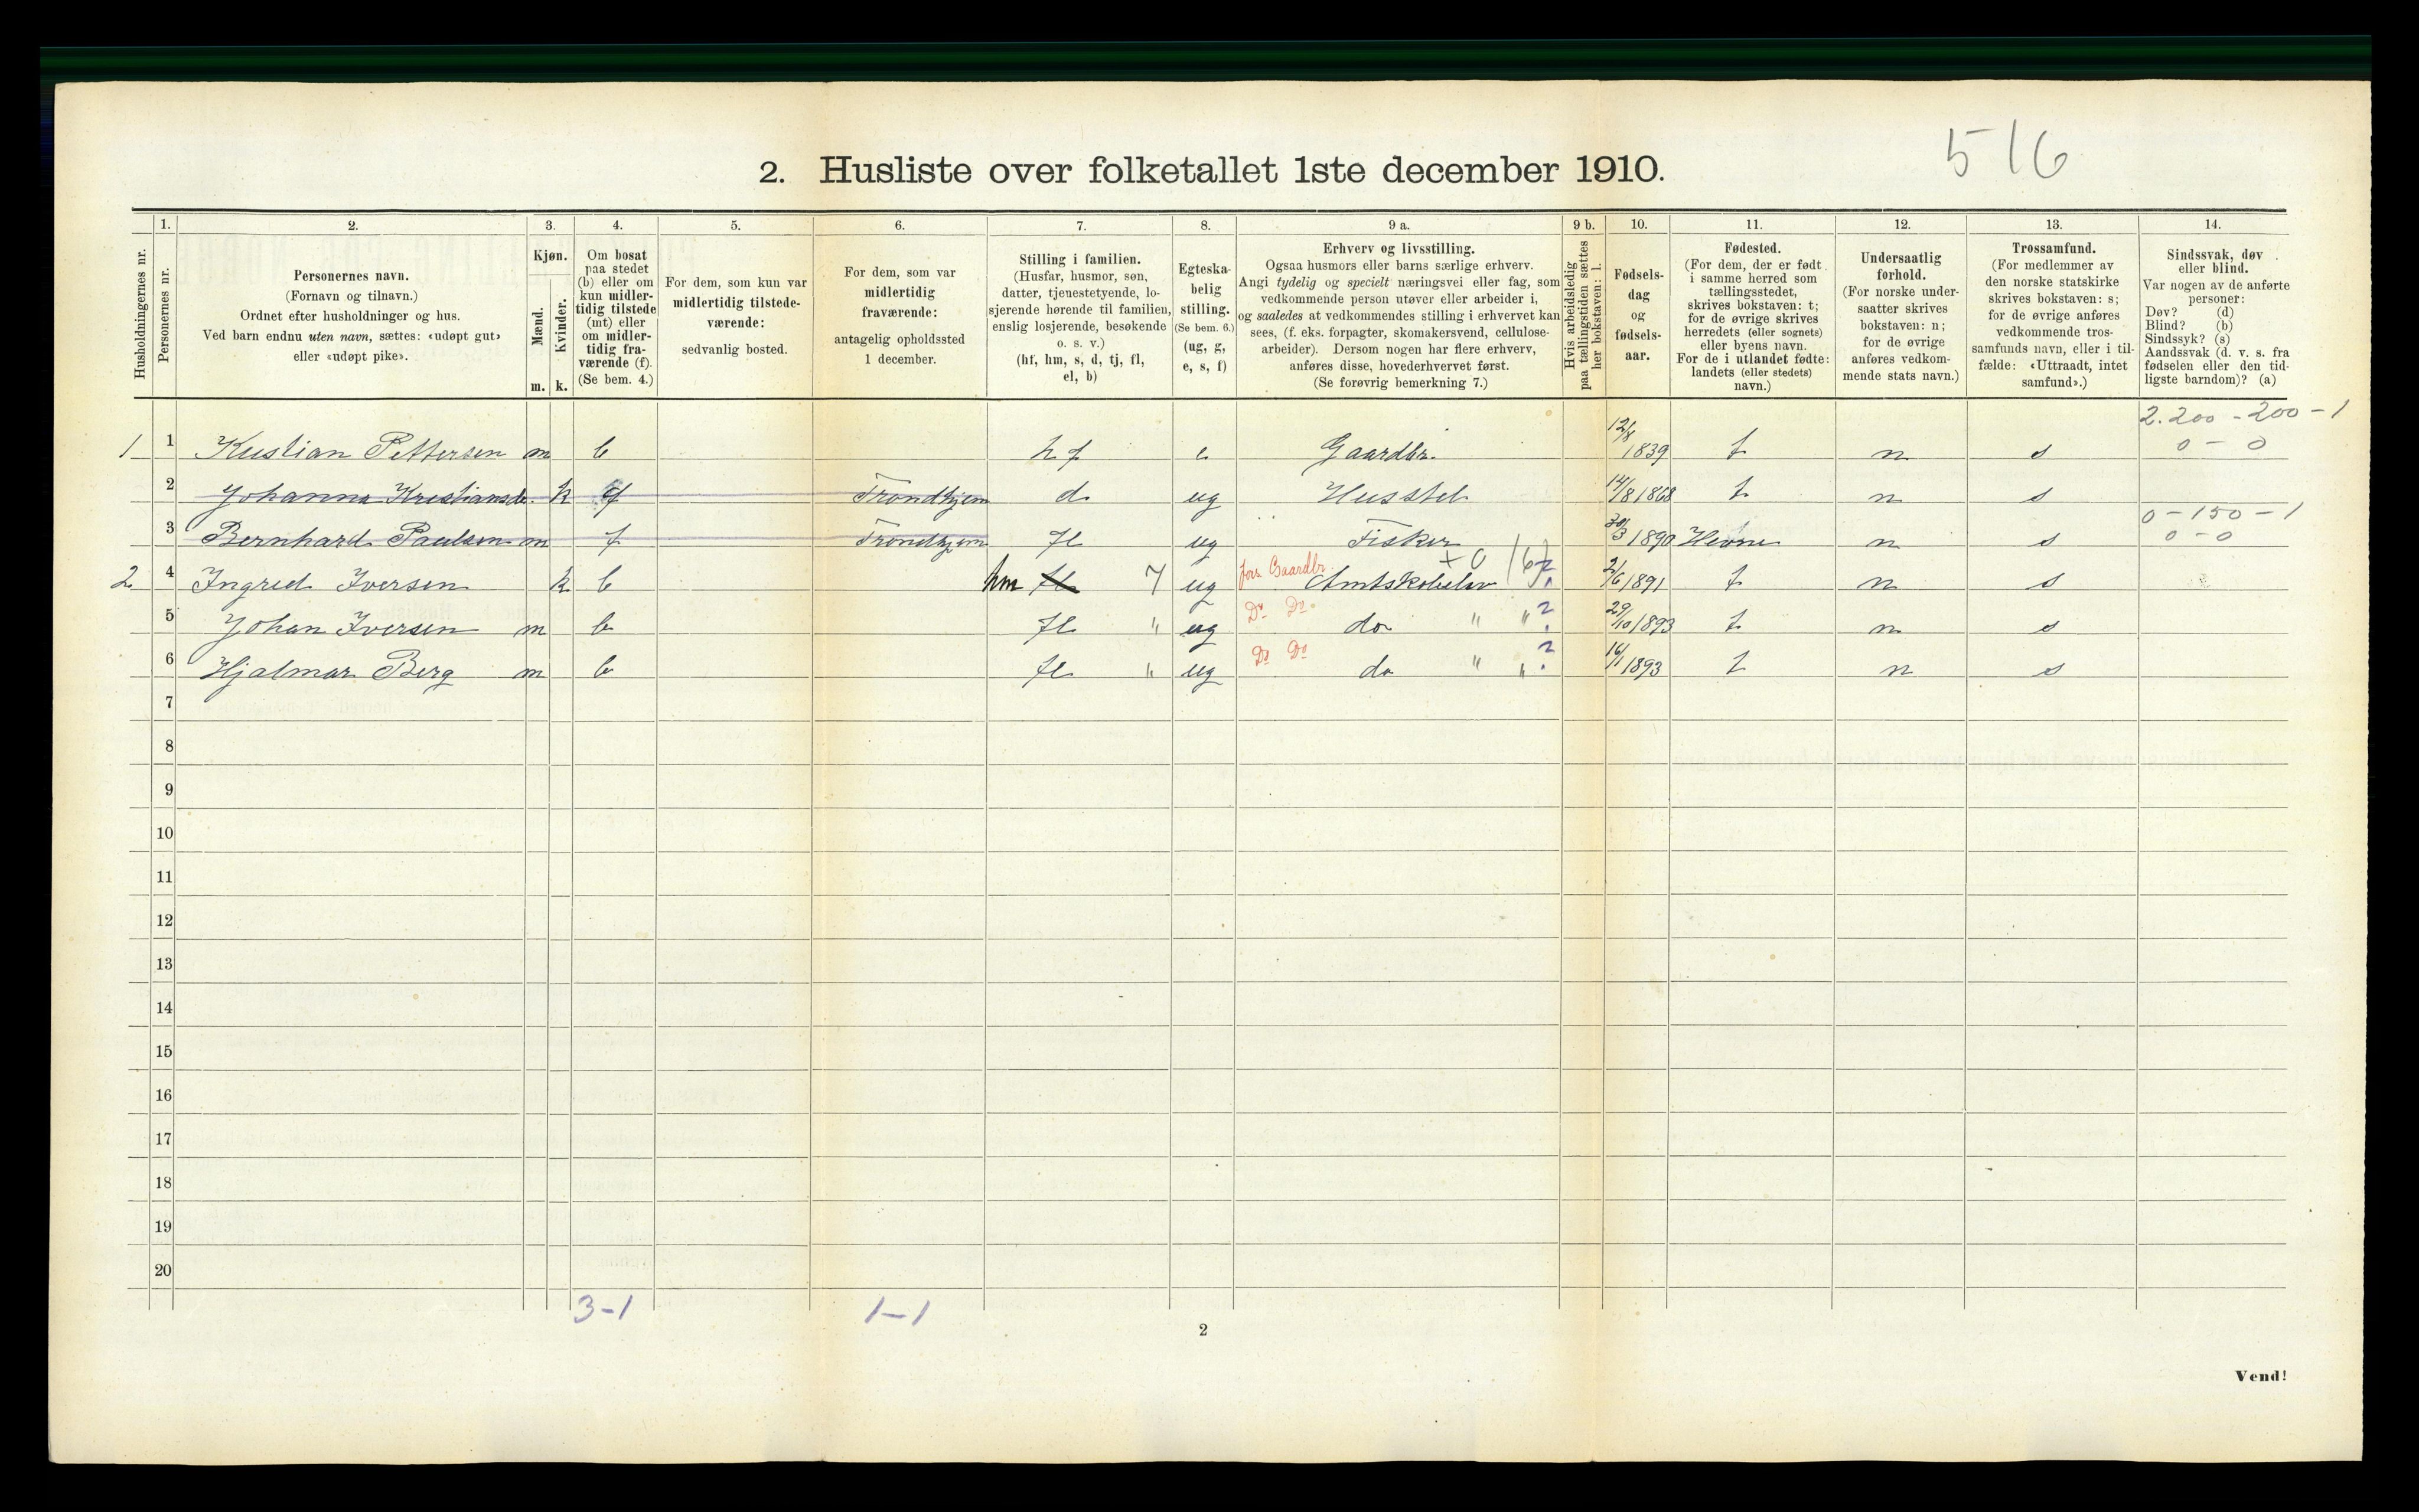 516
2. Husliste over folketallet 1ste december 1910.
Husholdningernes nr.
1. Personernes nr.
2. Personernes navn.
(Fornavn og tilnavn.)
Ordnet efter husholdninger og hus.
Ved barn endnu uten navn, sættes: «udøpt gut»
eller «udøpt pike».
3. Kjøn.
Mænd. m.
Kvinder. k.
4. Om bosat
paa stedet
(b) eller om
kun midler-
tidig tilstede
(mt) eller
om midler-
tidig fra-
værende (f).
(Se bem. 4.)
5. For dem, som kun var
midlertidig tilstede-
værende:
sedvanlig bosted.
6. For dem, som var
midlertidig
fraværende:
antagelig opholdssted
1 december.
7. Stilling i familien.
(Husfar, husmor, søn,
datter, tjenestetyende, lo-
sjerende hørende til familien,
enslig losjerende, besøkende
o. s. v.)
(hf, hm, s, d, tj, fl,
el, b)
8. Egteska-
belig
stilling.
(Se bem. 6.)
(ug, g,
e, s, f)
9 a. Erhverv og livsstilling.
Ogsaa husmors eller barns særlige erhverv.
Angi tydelig og specielt næringsvei eller fag, som
vedkommende person utøver eller arbeider i,
og saaledes at vedkommendes stilling i erhvervet kan
sees, (f. eks. forpagter, skomakersvend, cellulose-
arbeider). Dersom nogen har flere erhverv,
anføres disse, hovederhvervet først.
(Se forøvrig bemerkning 7.)
9 b. Hvis arbeidsledig
paa tællingstiden sættes
her bokstaven: l.
10. Fødsels-
dag
og
fødsels-
aar.
11. Fødested.
(For dem, der er født
i samme herred som
tællingsstedet,
skrives bokstaven: t;
for de øvrige skrives
herredets (eller sognets)
eller byens navn.
For de i utlandet fødte:
landets (eller stedets)
navn.)
12. Undersaatlig
forhold.
(For norske under-
saatter skrives
bokstaven: n;
for de øvrige
anføres vedkom-
mende stats navn.)
13. Trossamfund.
(For medlemmer av
den norske statskirke
skrives bokstaven: s;
for de øvrige anføres
vedkommende tros-
samfunds navn, eller i til-
fælde: «Uttraadt, intet
samfund».)
14. Sindssvak, døv
eller blind.
Var nogen av de anførte
personer:
Døv? (d)
Blind? (b)
Sindssyk? (s)
Aandssvak (d. v. s. fra
fødselen eller den tid-
ligste barndom)? (a)
2.200 - 200 - 1
1 1 Kristian Pettersen m b hf e Gaardbr. 12/8 1839 t n s 0 - 0
2 Johanna Kristiansdr. k f Trondhjem d ug Husstel 14/8 1868 t n s
0 - 150 - 1
3 Bernhard Paulsen m f Trondhjem fl ug Fisker 30/3 1890 Hevne n s 0 - 0
2 4 Ingrid Iversen k b hm fl 7 ug fors. Gaardbr. Amtskoleelev ? 2/6 1891 t n s
5 Johan Iversen m b fl " ug Do Do do " " ? 29/10 1893 t n s
6 Hjalmar Berg m b fl " ug Do Do do " " ? 16/1 1893 t n s
7
8
9
10
11
12
13
14
15
16
17
18
19
20
3-1 1-1
2
Vend!